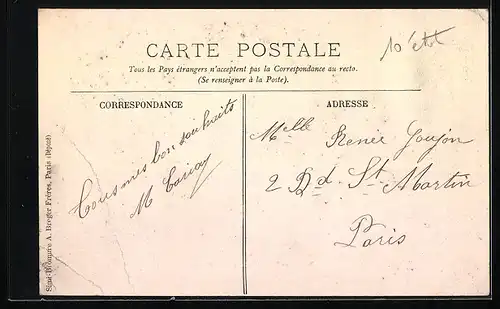 CARTE POSTALE
Tous les Pays étrangers n'acceptent pas la Correspondance au recto.
(Se renseigner à la Poste).
CORRESPONDANCE
Tous mes bon souhaits
M
ADRESSE
Melle Renée Goujon
2 Bd St Martin
Paris
A. Bregér Frères, Paris (Déposé)